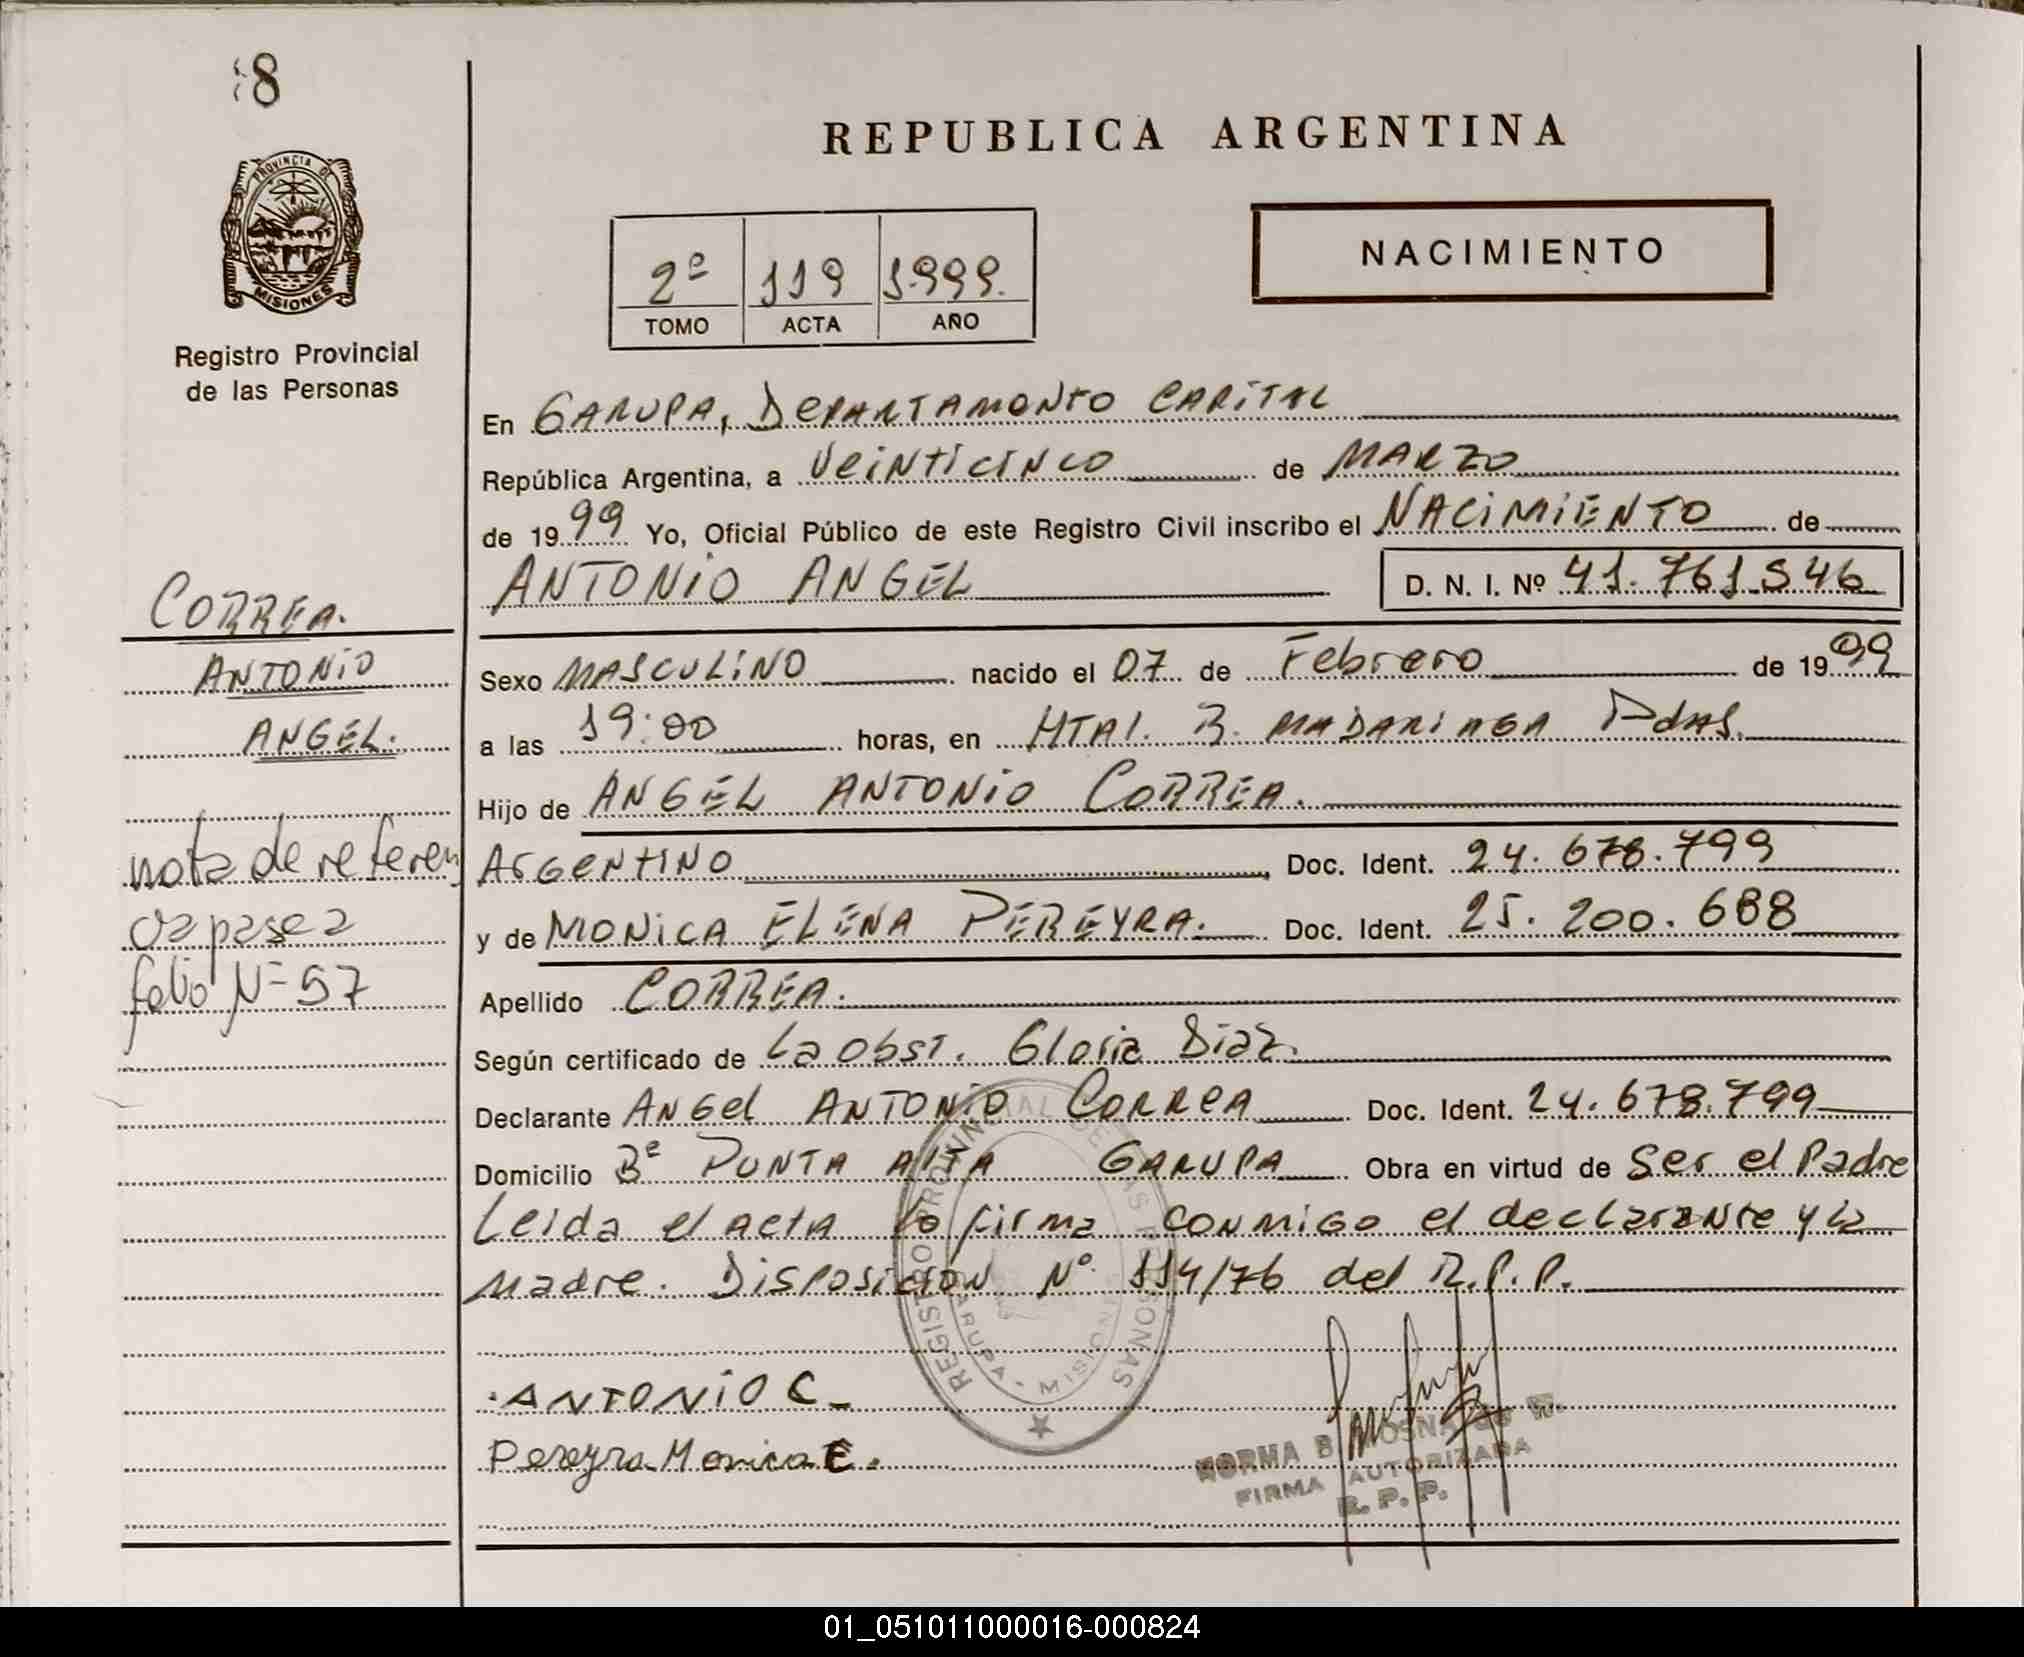 8
REPUBLICA ARGENTINA
PROVINCIA DE
MISIONES
Registro Provincial
de las Personas
2º 119 1.999.
TOMO ACTA AÑO
NACIMIENTO
En GARUPA, DEPARTAMENTO CAPITAL
República Argentina, a VEINTICINCO de MARZO
de 1999 Yo, Oficial Público de este Registro Civil inscribo el NACIMIENTO de
ANTONIO ANGEL D. N. I. Nº 41.761.546
CORREA.
ANTONIO
ANGEL.
nota de referen
cia pase a
folio Nº 57
Sexo MASCULINO nacido el 07 de Febrero de 1999
a las 19:00 horas, en HTAL. R. MADARIAGA Pdas.
Hijo de ANGEL ANTONIO CORREA.
ARGENTINO Doc. Ident. 24.678.799
y de MONICA ELENA PEREYRA. Doc. Ident. 25.200.688
Apellido CORREA.
Según certificado de La obst. Gloria Diaz.
Declarante ANGEL ANTONIO CORREA Doc. Ident. 24.678.799
Domicilio Bº PUNTA ALTA GARUPA Obra en virtud de Ser el Padre
Leida el acta lo firma conmigo el declarante y la
Madre. Disposicion Nº 114/76 del R.P.P.
REGISTRO PROVINCIAL DE LAS PERSONAS
GARUPA - MISIONES
ANTONIO C
Pereyra Monica E.
NORMA B
FIRMA AUTORIZADA
R. P. P.
01_051011000016-000824